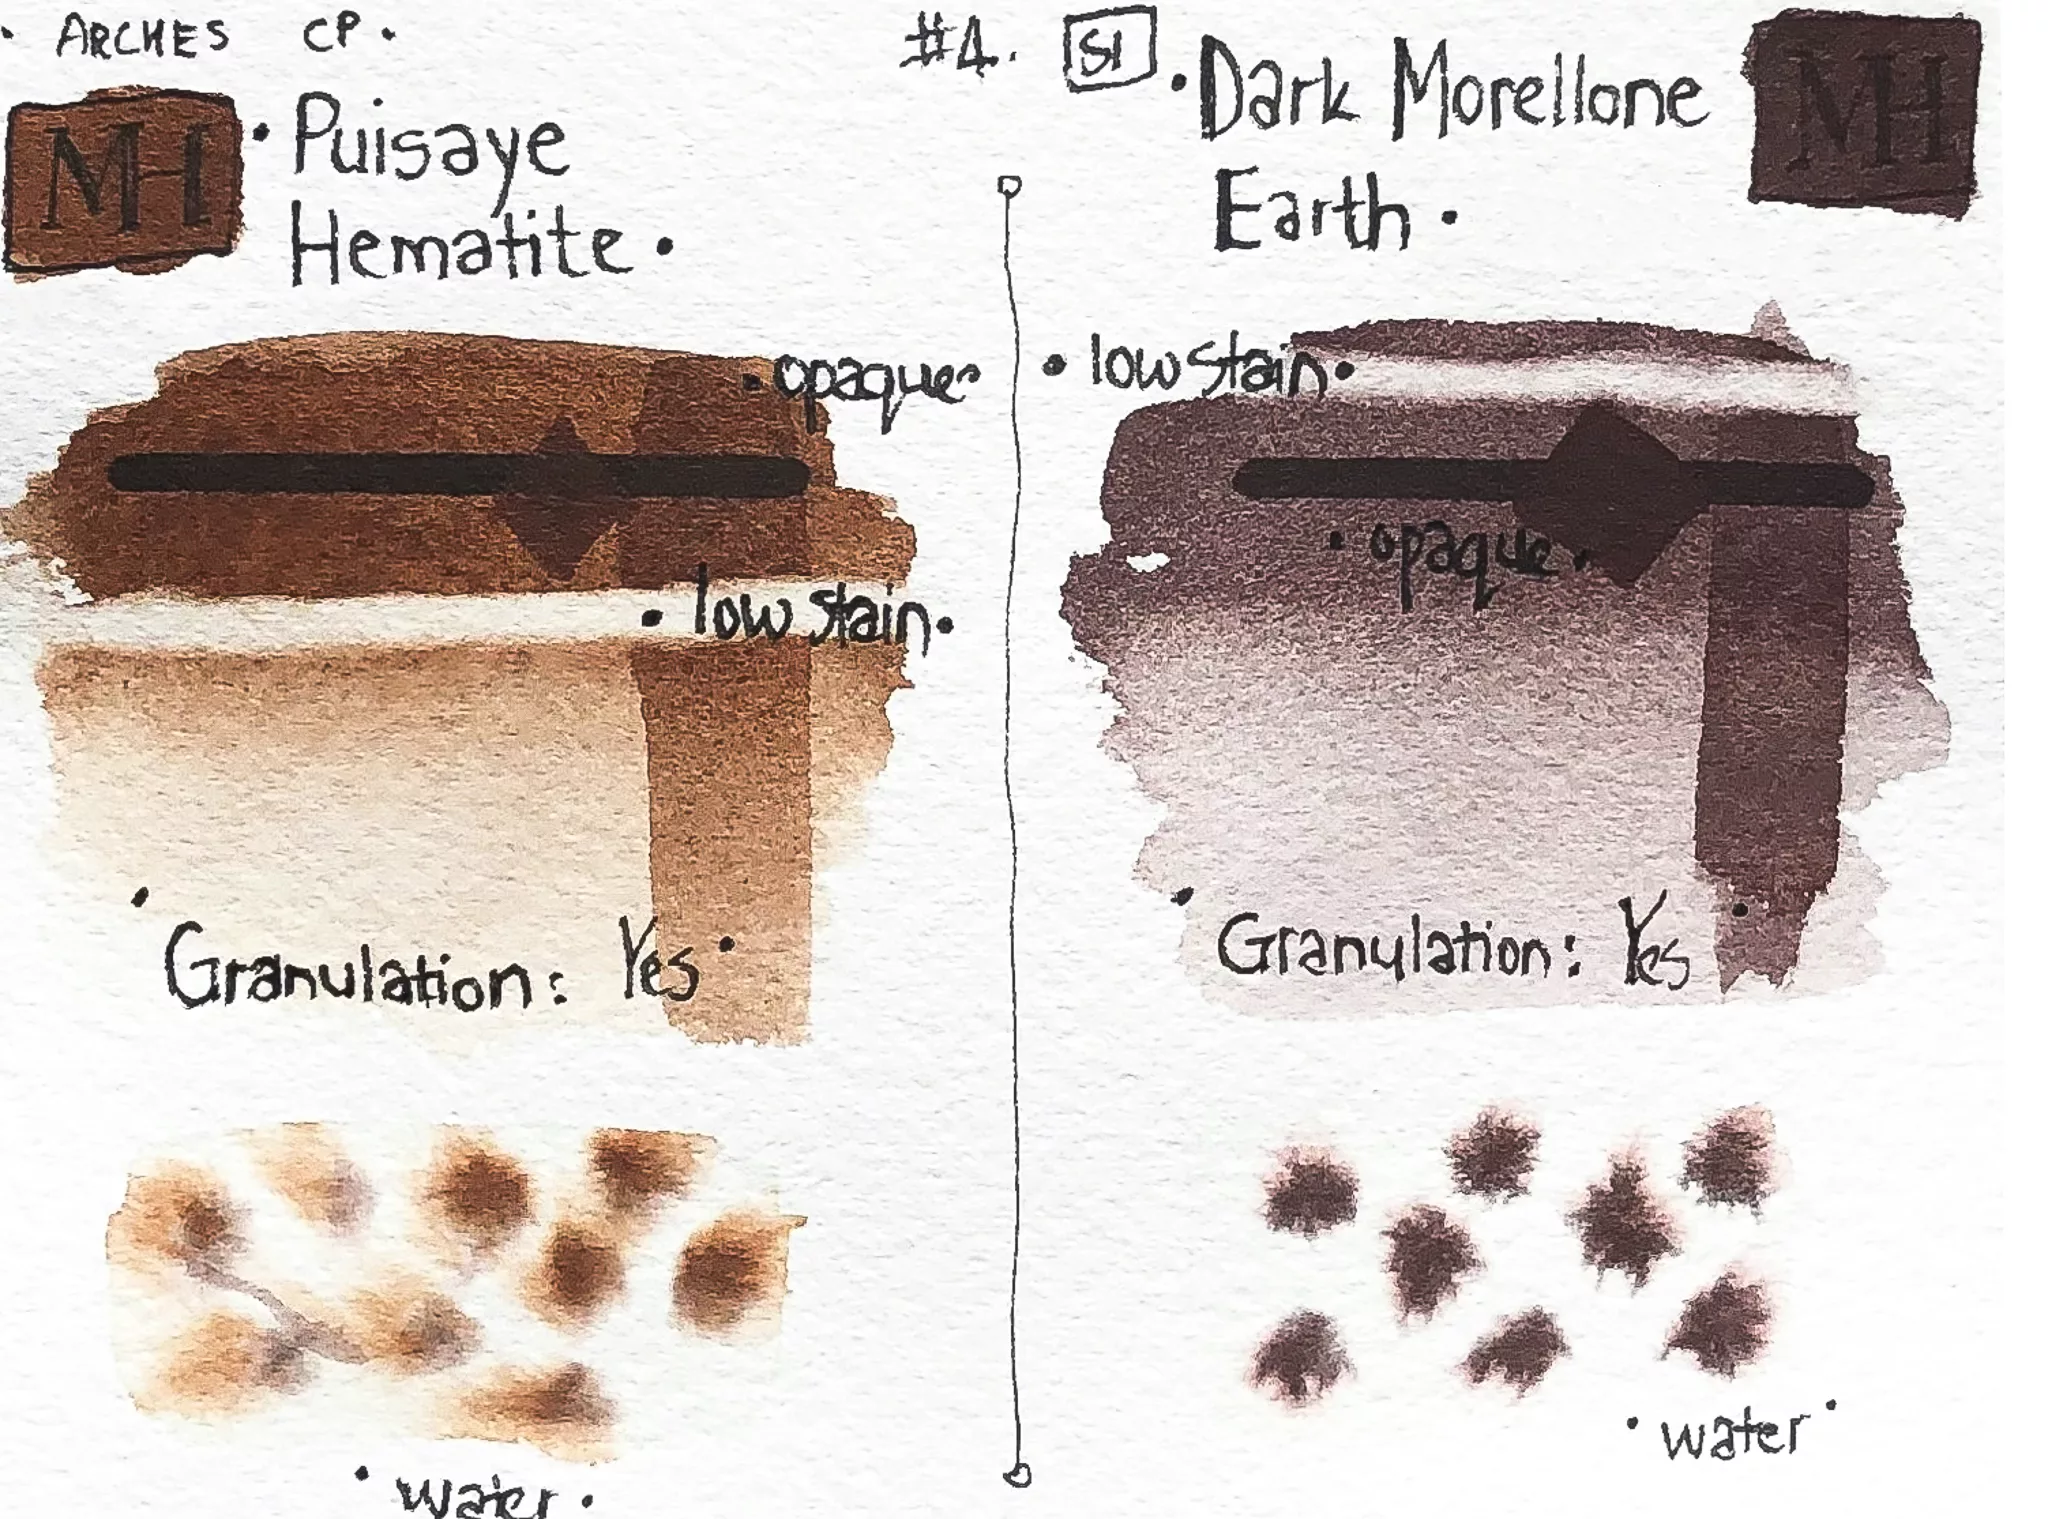 · ARCHES CP.
#4. S1
MH
· Puisaye
Hematite ·
· opaque ·
· low stain ·
· Granulation: Yes ·
· water ·
· Dark Morellone
Earth ·
MH
· low stain ·
· opaque ·
· Granulation: Yes ·
· water ·